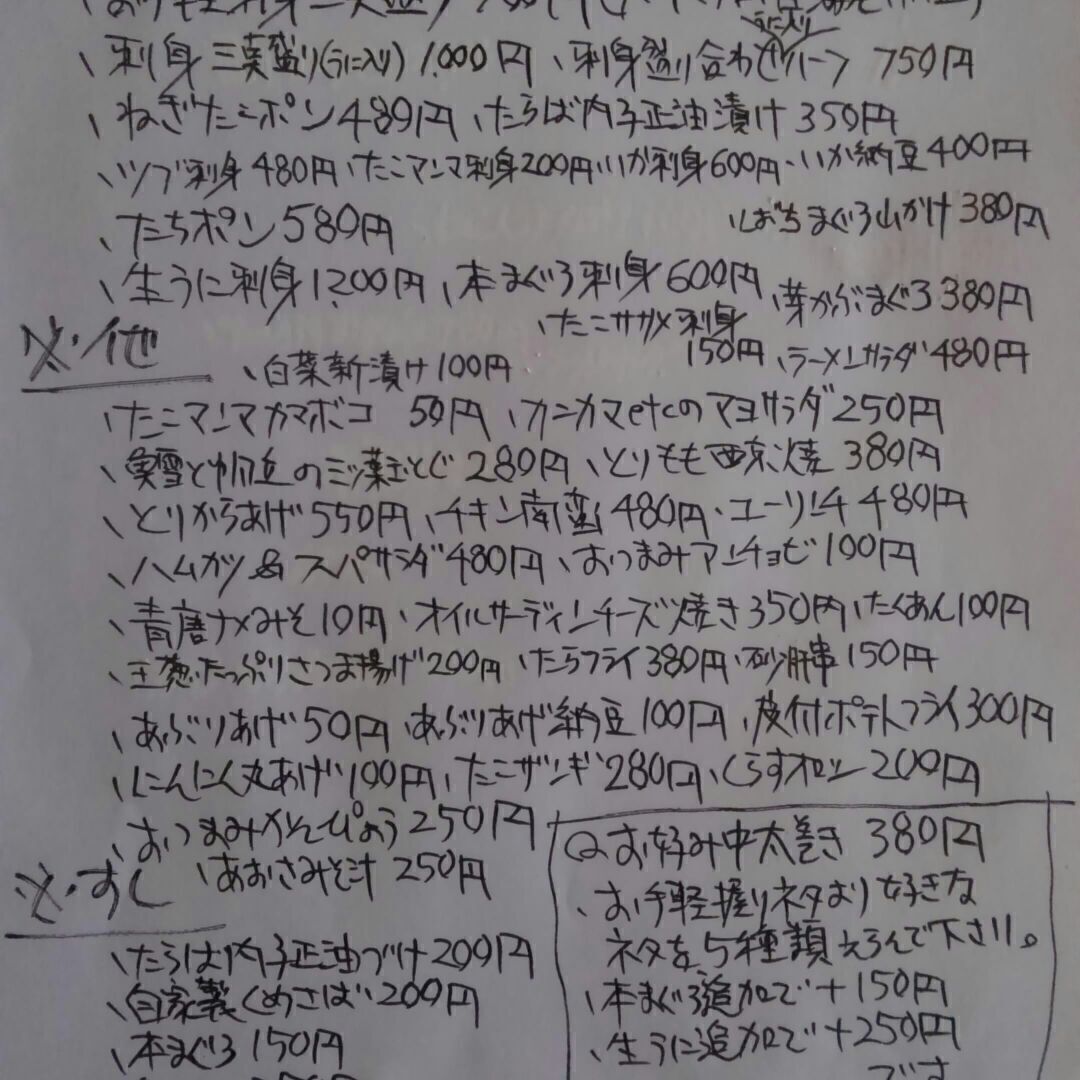 、刺身三点盛り(うに入り)1,000円 、刺身盛り合わせハーフ 750円
、ねぎたこポン480円 、たらば内子正油漬け350円
、ツブ刺身480円 、たこマンマ刺身200円 、いか刺身600円 、いか納豆400円
、たちポン580円 、ばちまぐろ山かけ380円
、生うに刺身1,200円 、本まぐろ刺身600円 、芽かぶまぐろ380円
、たこササメ刺身
※・他 150円 、ラーメンサラダ480円
、白菜新漬け100円
、たこマンマカマボコ 50円 、カニカマetcのマヨサラダ250円
、と帆立の三ッ葉玉とじ280円 、とりもも西京焼380円
、とりからあげ550円 、チキン南蛮480円 、ユーリンチ480円
、ハムカツ&スパサラダ480円 、おつまみアンチョビ100円
、青唐ナメみそ10円 、オイルサーディンチーズ焼き350円 、たくあん100円
、玉葱たっぷりさつま揚げ200円 、たらフライ380円 、砂肝串150円
、あぶりあげ50円 、あぶりあげ納豆100円 、皮付ポテトフライ300円
、にんにく丸あげ100円 、たこザンギ280円 、しらすオロシ200円
、おつまみかんぴょう250円
、あおさみそ汁 250円
※・すし
、たらば内子正油づけ200円
、自家製〆めさば200円
、本まぐろ150円
◎お好み中太巻き 380円
、お手軽握りネタより好きな
ネタを5種類えらんで下さい。
、本まぐろ追加で+150円
、生うに追加で+250円
です